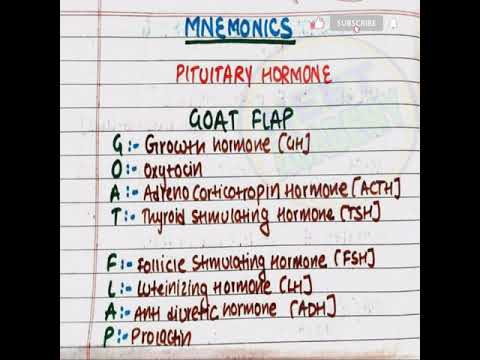 MNEMONICS
SUBSCRIBE
PITUITARY HORMONE
GOAT FLAP
G:- Growth hormone [GH]
O:- Oxytocin
A:- Adreno corticotropin Hormone [ACTH]
T:- Thyroid stimulating Hormone [TSH]
F:- Follicle stimulating hormone [FSH]
L:- Luteinizing Hormone [LH]
A:- Anti diuretic hormone [ADH]
P:- Prolactin